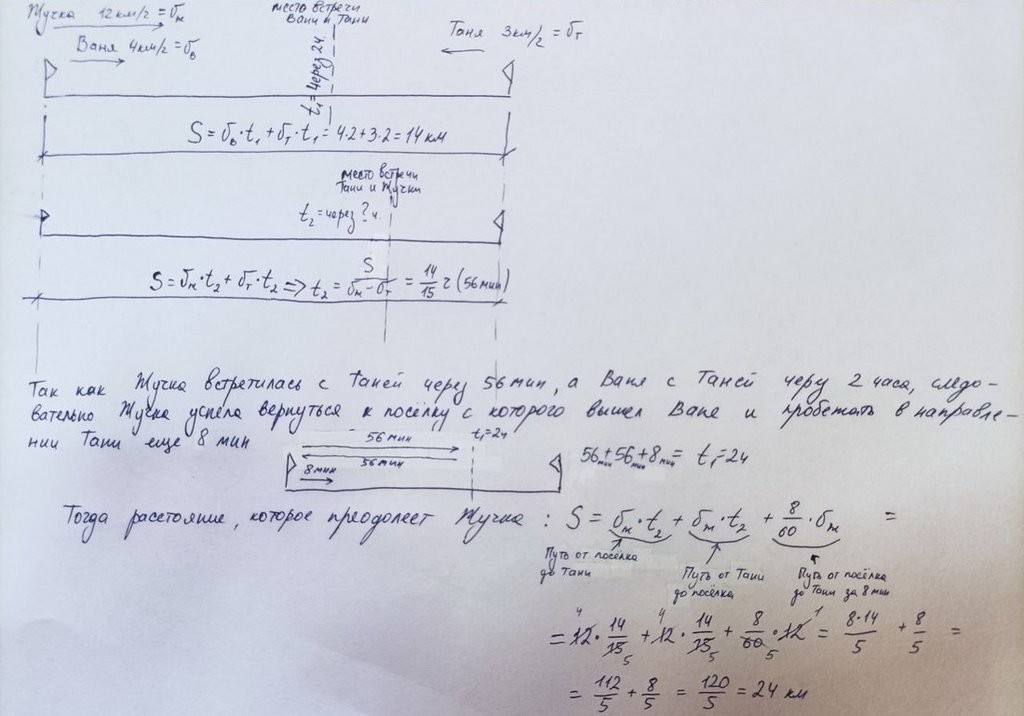 Жучка 12 км/ч = v_ж
Ваня 4 км/ч = v_в
место встречи
Вани и Тани
t₁ = через 2ч
Таня 3 км/ч = v_т
S = v_в·t₁ + v_т·t₁ = 4·2+3·2 = 14 км
место встречи
Тани и Жучки
t₂ = через ? ч
S = v_ж·t₂ + v_т·t₂ => t₂ = S/(v_ж - v_т) = 14/15 ч (56 мин)
Так как Жучка встретилась с Таней через 56 мин, а Ваня с Таней черу 2 часа, следо-
вательно Жучка успела вернуться к посёлку с которого вышел Ваня и пробежать в направле-
нии Тани еще 8 мин
56 мин
t₁=2ч
56 мин
8 мин
56 мин + 56 мин + 8 мин = t₁ = 2ч
Тогда расстояние, которое преодолеет Жучка : S = v_ж·t₂ + v_ж·t₂ + 8/60·v_ж =
Путь от посёлка
до Тани
Путь от Тани
до посёлка
Путь от посёлка
до Тани за 8 мин
= 12·14/15 + 12·14/15 + 8/60·12 = 8·14/5 + 8/5 =
= 112/5 + 8/5 = 120/5 = 24 км